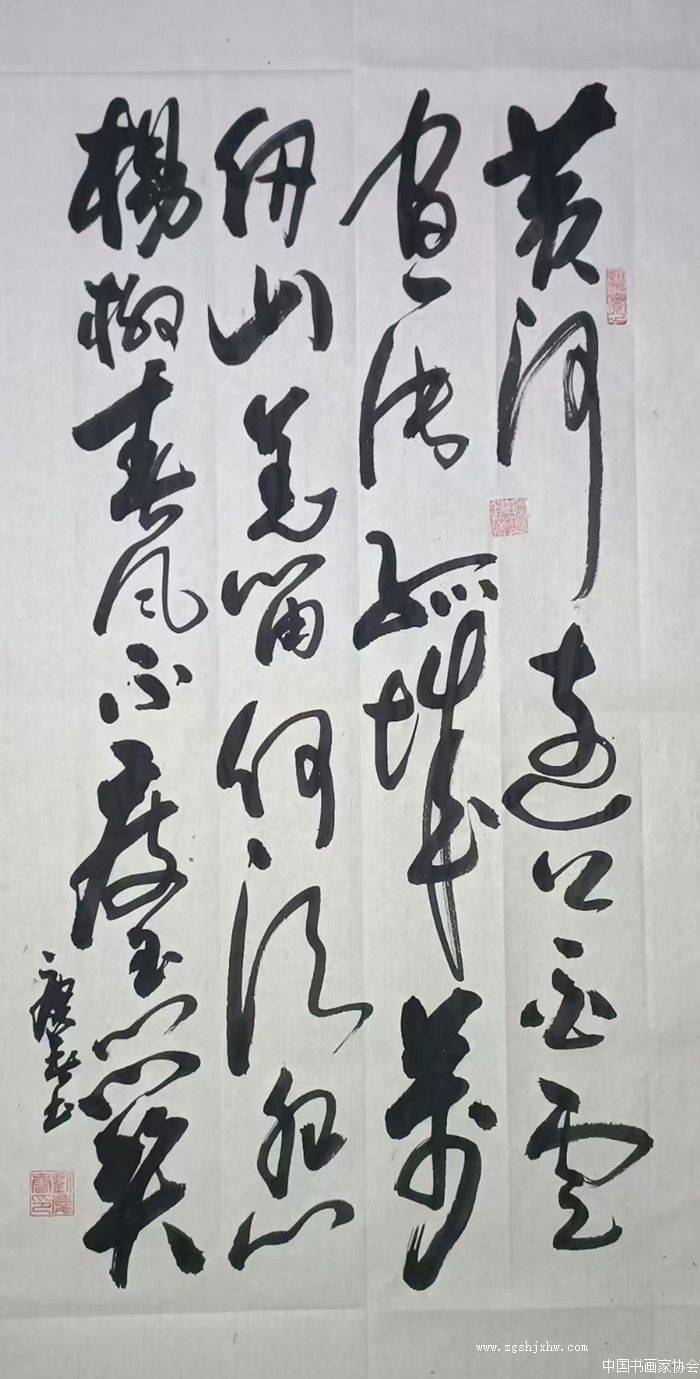 黄河遠上白雲
间一片孤城萬
仞山羌笛何須怨
楊柳春风不度玉门関
www.zgshjxhw.com
中国书画家协会